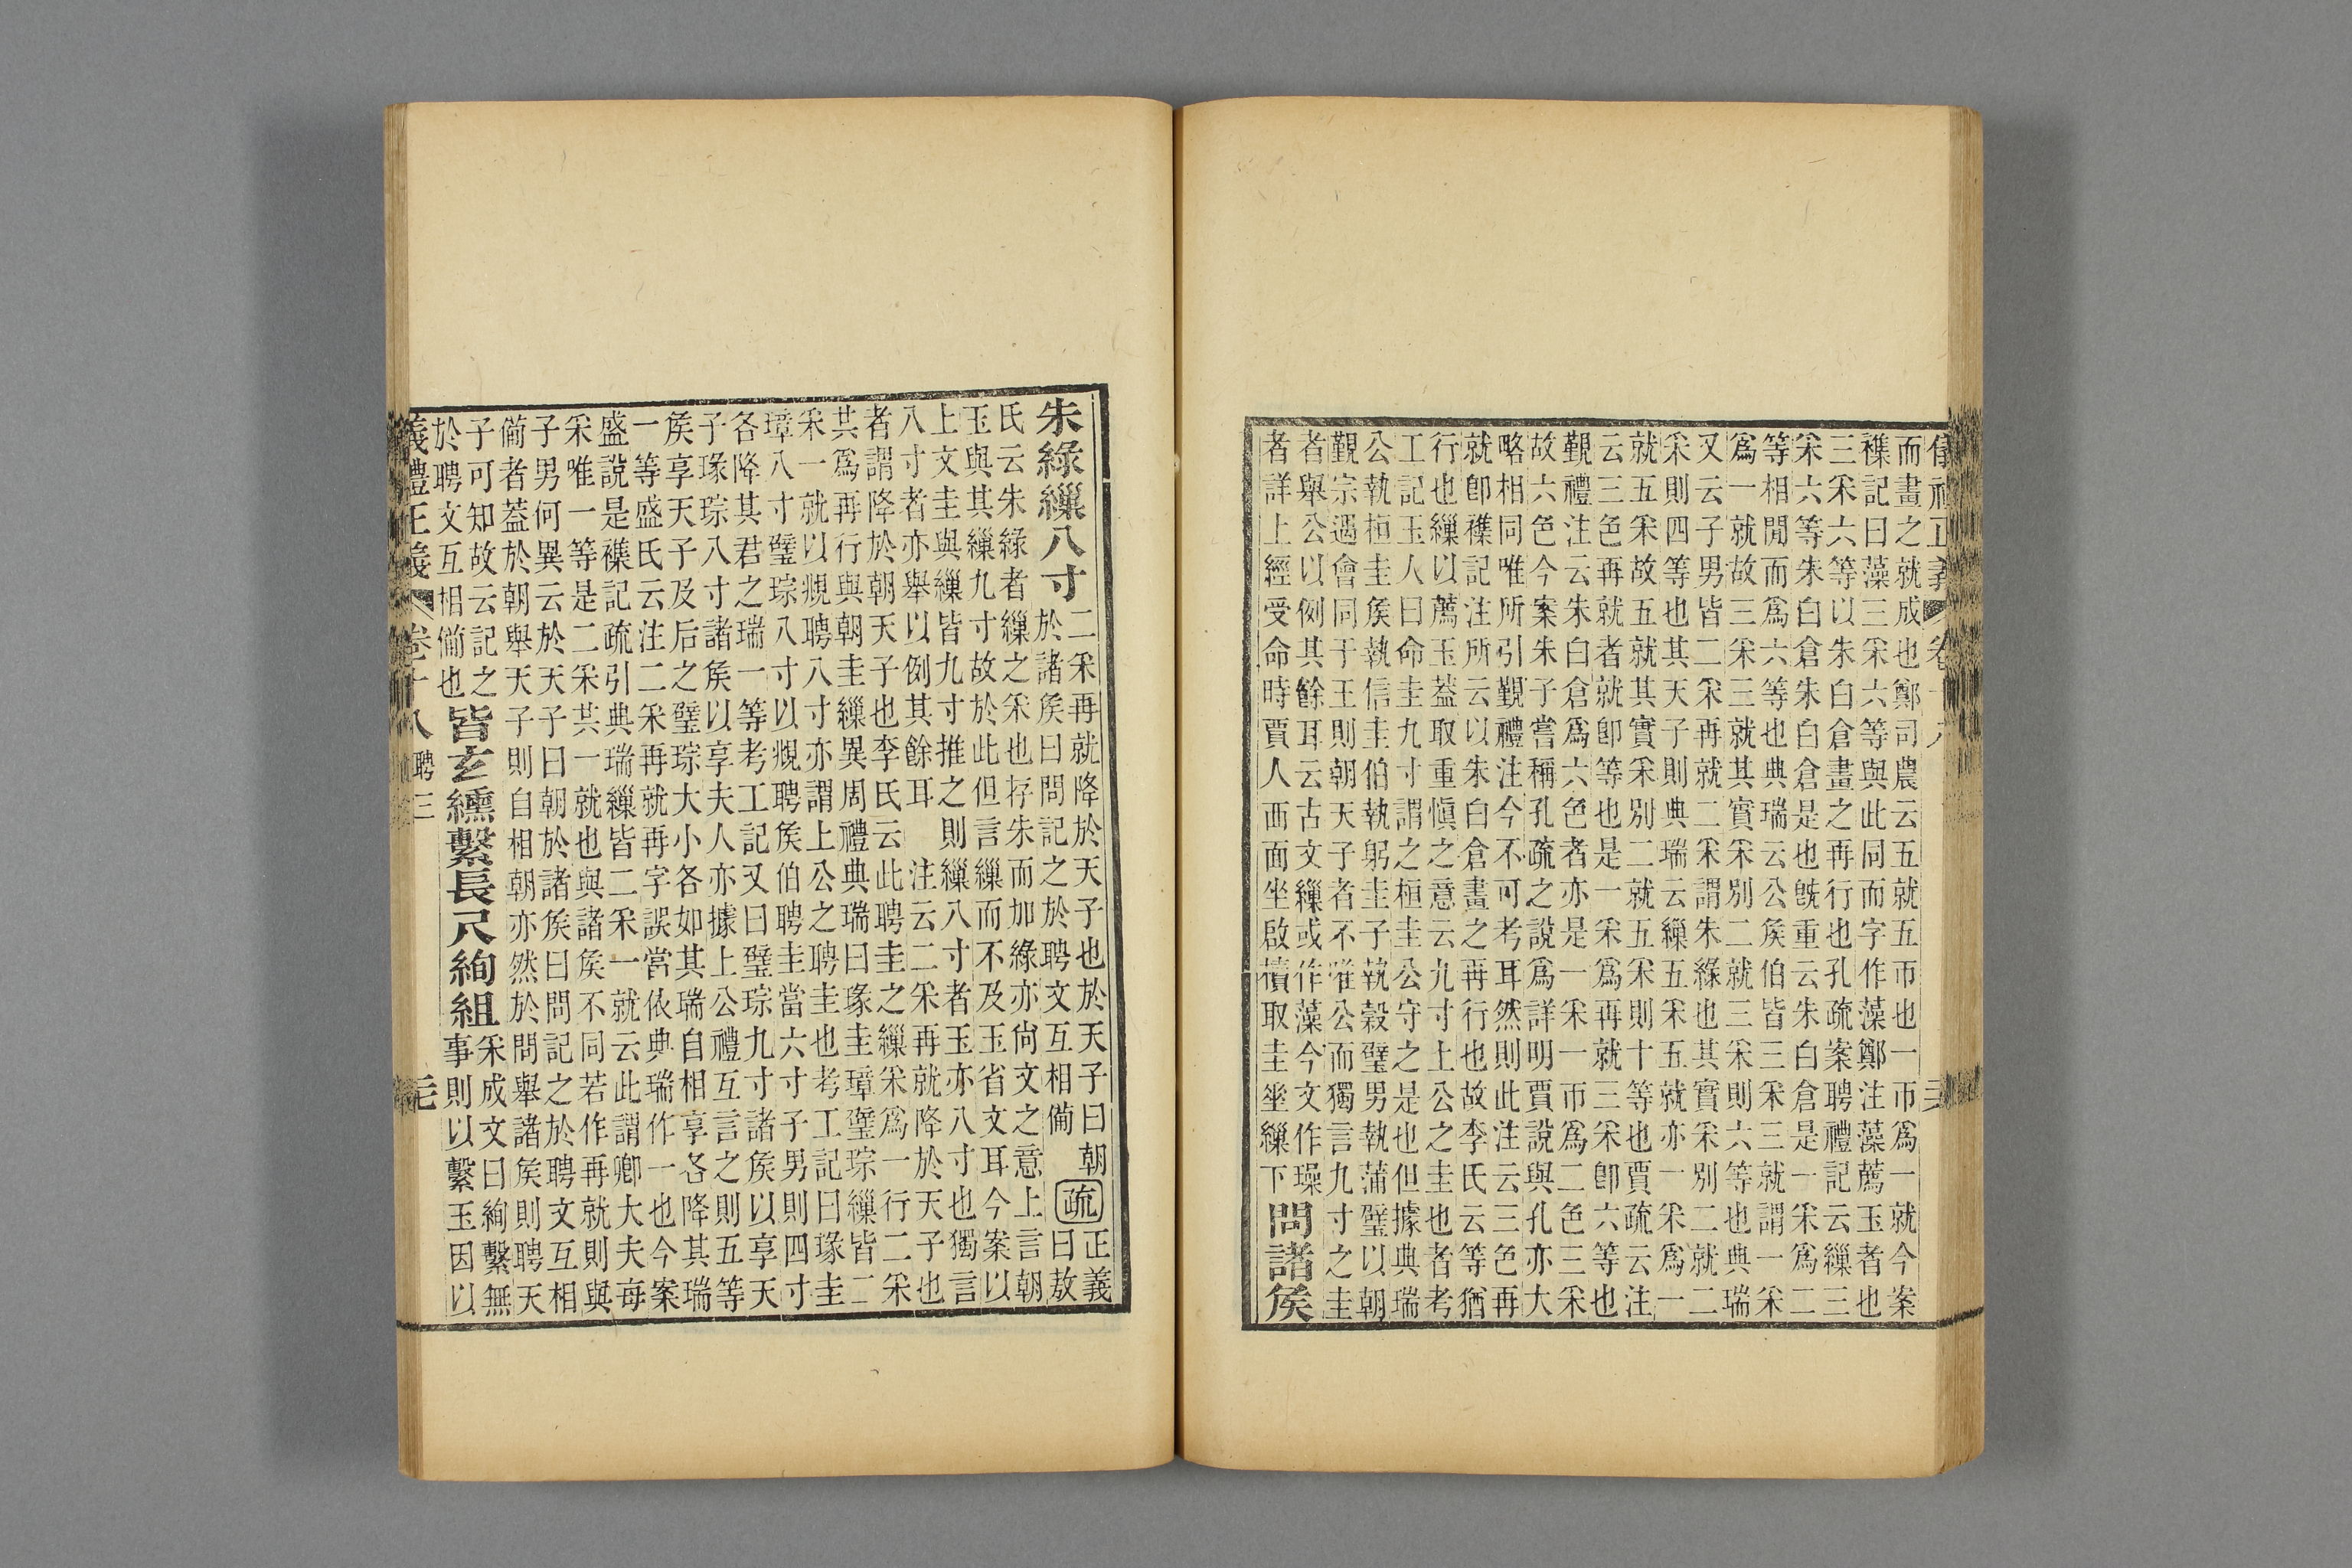 儀禮正義 卷十八
而畫之就成也鄭司農云五就五帀也一帀爲一就今案
襍記曰藻三采六等與此同而字作藻鄭注藻薦玉者也
三采六等以朱白倉畫之再行也孔疏案聘禮記云繅三
采六等朱白倉朱白倉是也旣重云朱白倉是一采爲二
等相閒而爲六等也典瑞云公侯伯皆三采三就謂一采
爲一就故三采三就其實采別二就三采則六等也典瑞
又云子男皆二采再就二采謂朱綠也其實采別二就二
采則四等也其天子則典瑞云繅五采五就亦一采爲一
就五采故五就其實采別二就五采則十等也賈疏云注
云三色再就者就卽等也是一采爲再就三采卽六等也
覲禮注云朱白倉爲六色者亦是一采一帀爲二色三采
故六色今案朱子嘗稱孔疏之說爲詳明賈說與孔亦大
略相同唯所引覲禮注今不可考耳然則此注云三色再
就卽襍記注所云以朱白倉畫之再行也故李氏云等猶
行也繅以薦玉蓋取重愼之意云九寸上公之圭也者考
工記玉人曰命圭九寸謂之桓圭公守之是也但據典瑞
公執桓圭侯執信圭伯執躬圭子執穀璧男執蒲璧以朝
覲宗遇會同于王則朝天子者不唯公而獨言九寸之圭
者舉公以例其餘耳云古文繅或作藻今文作璪
者詳上經受命時賈人西面坐啟櫝取圭垂繅下
問諸侯
朱綠繅八寸
二采再就降於天子也於天子曰朝
於諸侯曰問記之於聘文互相僃
疏 正義
曰敖
氏云朱綠者繅之采也存朱而加綠亦尙文之意上言朝
玉與其繅九寸故於此但言繅而不及玉省文耳今案以
上文圭與繅皆九寸推之則繅八寸者玉亦八寸也獨言
八寸者亦舉以例其餘耳 注云二采再就降於天子也
者謂降於朝天子也李氏云此聘圭之繅采爲一行二采
共爲再行與朝圭繅異周禮典瑞曰瑑圭璋璧琮繅皆二
采一就以覜聘八寸亦謂上公之聘圭也考工記曰瑑圭
璋八寸璧琮八寸以覜聘侯伯聘圭當六寸子男則四寸
各降其君之瑞一等考工記又曰璧琮九寸諸侯以享天
子瑑琮八寸諸侯以享夫人亦據上公禮互言之則五等
侯享天子及后之璧琮大小各如其瑞自相享各降其瑞
一等盛氏云注二采再就再字誤當依典瑞作一也今案
盛說是襍記疏引典瑞繅皆二采一就云此謂卿大夫每
采唯一等是二采共一就也與諸侯不同若作再就則與
子男何異云於天子曰朝於諸侯曰問記之於聘文互相
僃者蓋於朝舉天子則自相朝亦然於問舉諸侯則聘天
子可知故云記之
於聘文互相僃也
皆玄纁繫長尺絢組
采成文曰絢繫無
事則以繫玉因以
義禮正義 卷十八 聘三